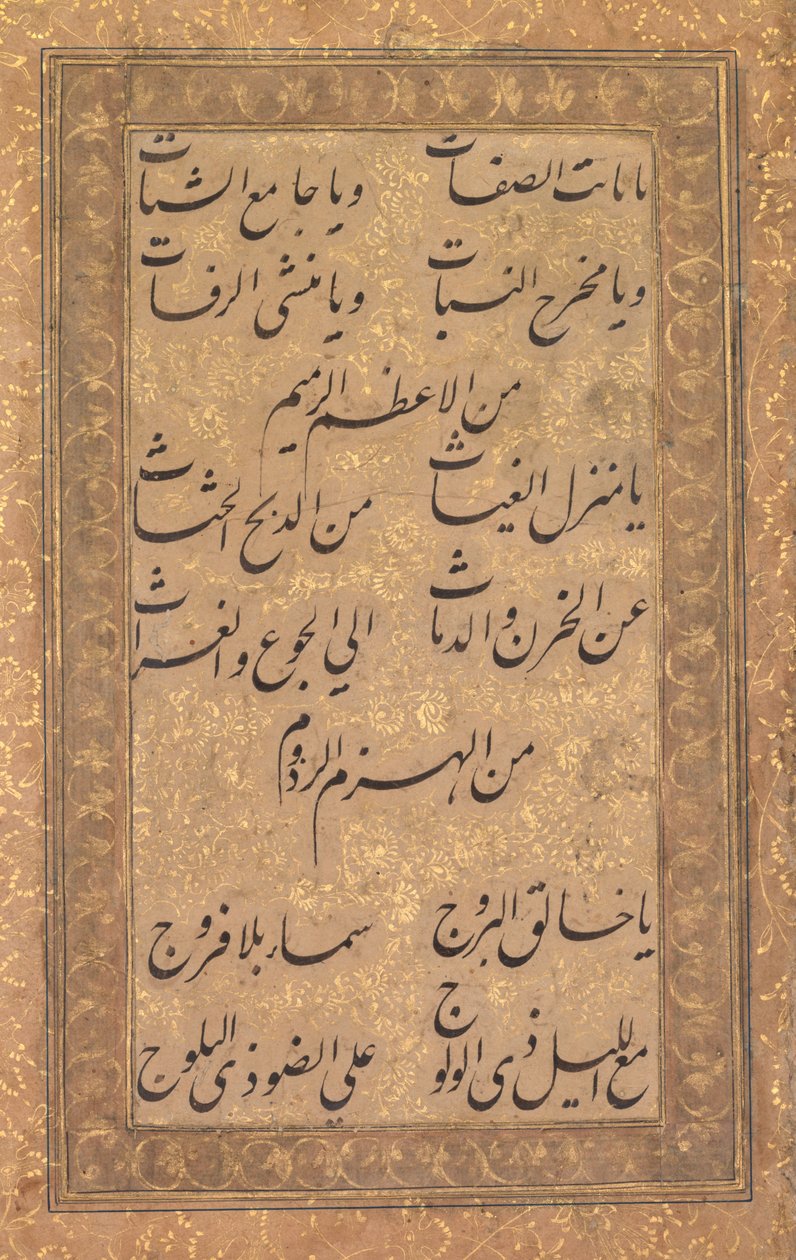 يا ثابت الصفات ويا جامع الشتات
ويا مخرج النبات ويا منشى الرفات
من الاعظم الرميم
يا منزل الغياث من الدبح الحثاث
عن الحزن والدماث الي الجوع والغراث
من الهزم الرذوم
يا خالق البروج سماء بلا فروج
مع الليل ذى الولوج علي الضو ذى البلوج